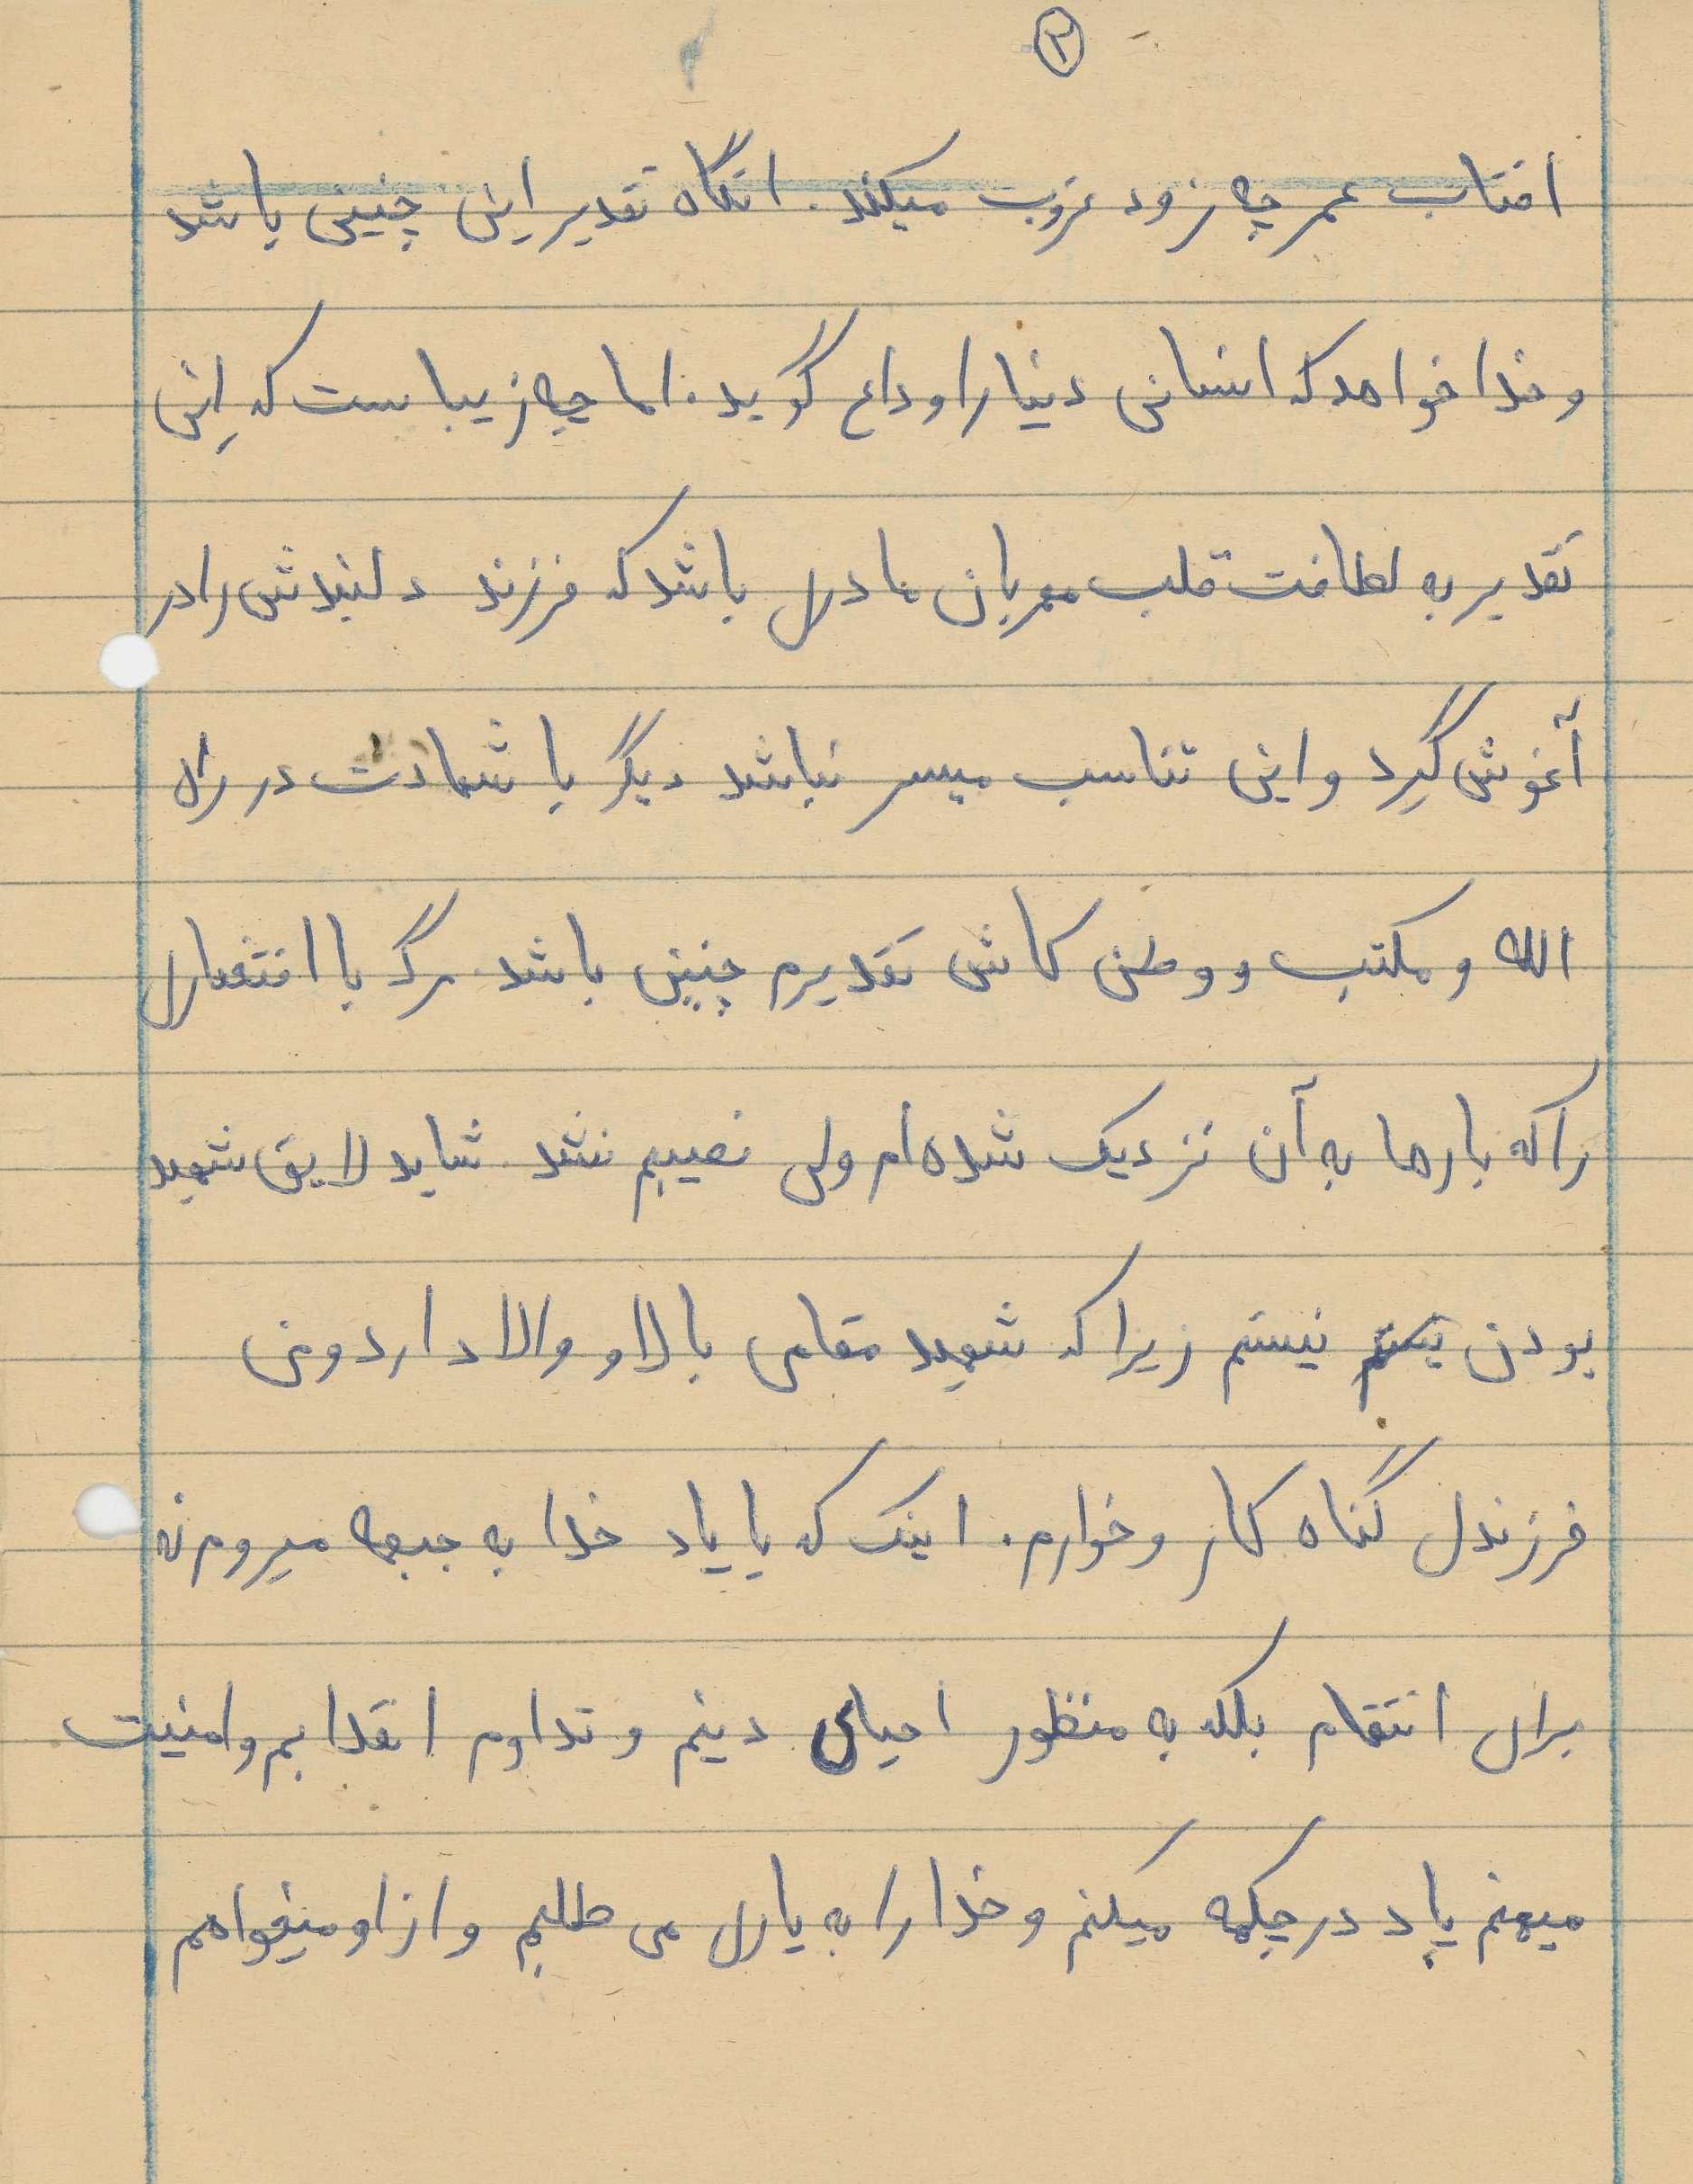 ۲
افتاب عمر چه زود غروب میکند. انگاه تقدیر این چنین باشد
و خدا خواهد که انسانی دنیا را وداع گوید. اما چه زیباست که این
تقدیر به لطافت قلب مهربان مادری باشد که فرزند دلبندش را در
آغوش گیرد و این تناسب میسر نباشد دیگر با شهادت در راه
الله و مکتب و وطن کاش تقدیرم چنین باشد مرگ با افتخاری
را که بارها به آن نزدیک شده‌ام ولی نصیبم نشد شاید لایق شهید
بودن نیستم زیرا که شهید مقامی بالا و والا دارد و من
فرزندی گناه کار و خوارم. اینک که با یاد خدا به جبهه میروم نه
برای انتقام بلکه به منظور احیای دینم و تداوم انقلابم و امنیت
میهنم پا در چکمه میکنم و خدا را به یاری می طلبم و از او میخواهم